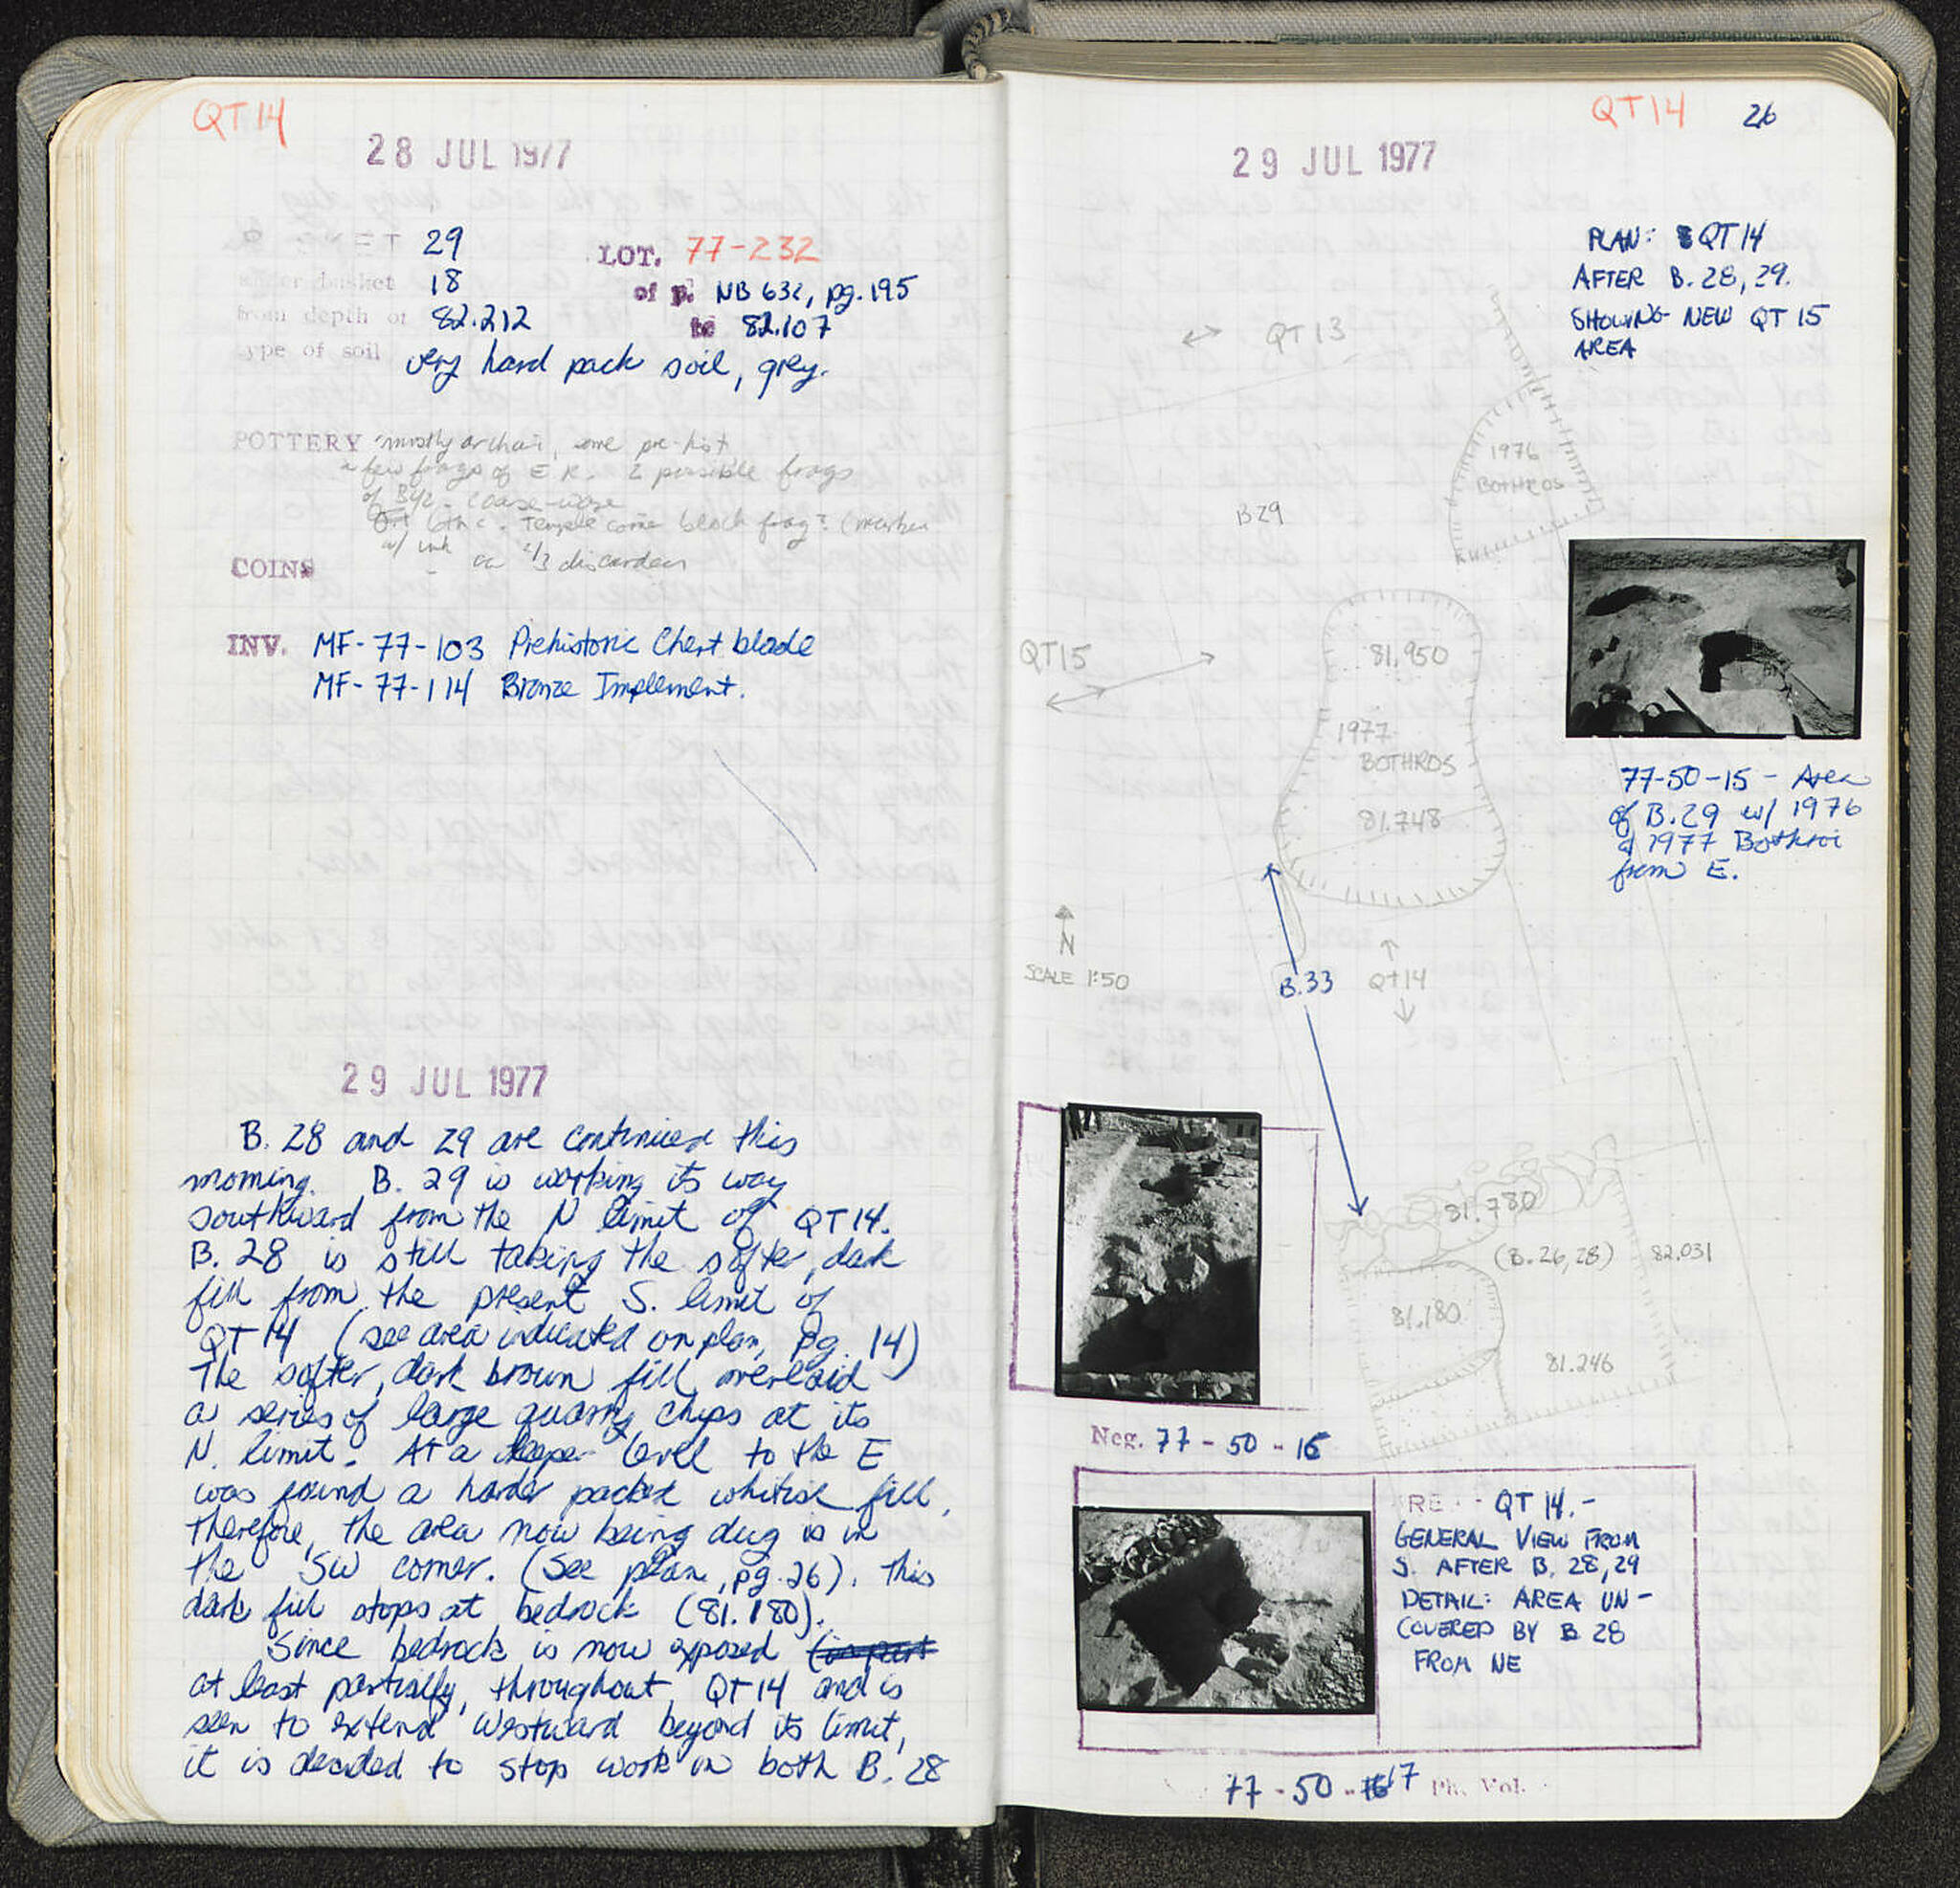 QT 14
28 JUL 1977
29
LOT. 77-232
under basket 18
of p. NB 632, pg. 195
from depth of 82.212
to 82.107
type of soil
very hard pack soil, grey.
POTTERY mostly archaic, some pre-hist
a few frags of E R. 2 possible frags
of Byz. coarse-ware
6th c. Temple frag? (marked
w/ ink
2/3 discarded
COINS -
INV. MF-77-103 Prehistoric Chert blade
MF-77-114 Bronze Implement.
29 JUL 1977
B. 28 and 29 are continued this
morning. B. 29 is working its way
southward from the N limit of QT 14.
B. 28 is still taking the softer, dark
fill from the present S. limit of
QT 14 (see area indicated on plan, pg. 14)
The softer, dark brown fill overlaid
a series of large quarry chips at its
N. limit. At a deeper level to the E
was found a harder packed whitish fill,
therefore, the area now being dug is in
the SW corner. (See plan, pg. 26). this
dark fill stops at bedrock (81.180).
Since bedrock is now exposed (in part
at least partially, throughout QT 14 and is
seen to extend westward beyond its limit,
it is decided to stop work in both B. 28
QT 14 26
29 JUL 1977
PLAN: QT 14
AFTER B. 28, 29.
SHOWING NEW QT 15
AREA
QT 13
1976
BOTHROS
B 29
QT 15
81.950
1977
BOTHROS
81.748
77-50-15 - Area
of B. 29 w/ 1976
& 1977 Bothroi
from E.
N
SCALE 1:50
B. 33
QT 14
81.780
(B. 26, 28) 82.031
81.180
81.246
Neg. 77-50-16
RE QT 14.-
GENERAL VIEW FROM
S. AFTER B. 28, 29
DETAIL: AREA UN-
COVERED BY B 28
FROM NE
77-50-17 Ph. Vol.